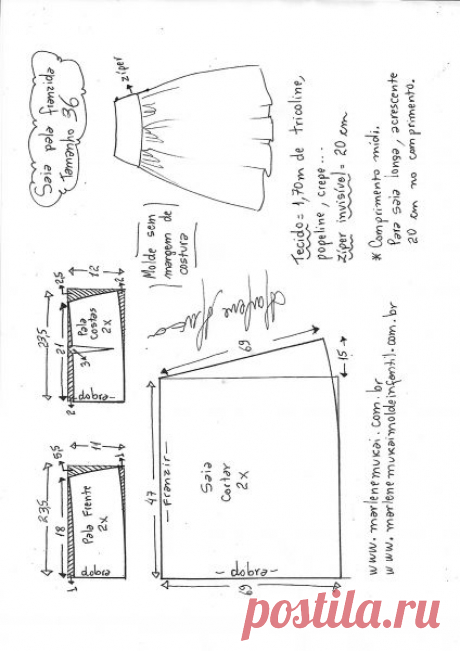 Saia pala franzida
Tamanho 36
zíper
Molde sem
margem de
costura
Tecido = 1,70m de tricoline,
popeline, crepe...
zíper invisível = 20 cm
* Comprimento midi.
Para saia longa, acrescente
20 cm no comprimento.
23,5
21
2
2,5
12
2
3
Pala
costas
2x
dobra
23,5
18
1
5,5
11
1
Pala Frente
2x
dobra
Marlene Mukai
47
Franzir
69
15
Saia
Cortar
2x
dobra
69
www.marlenemukai.com.br
www.marlenemukaimoldeinfantil.com.br
postila.ru